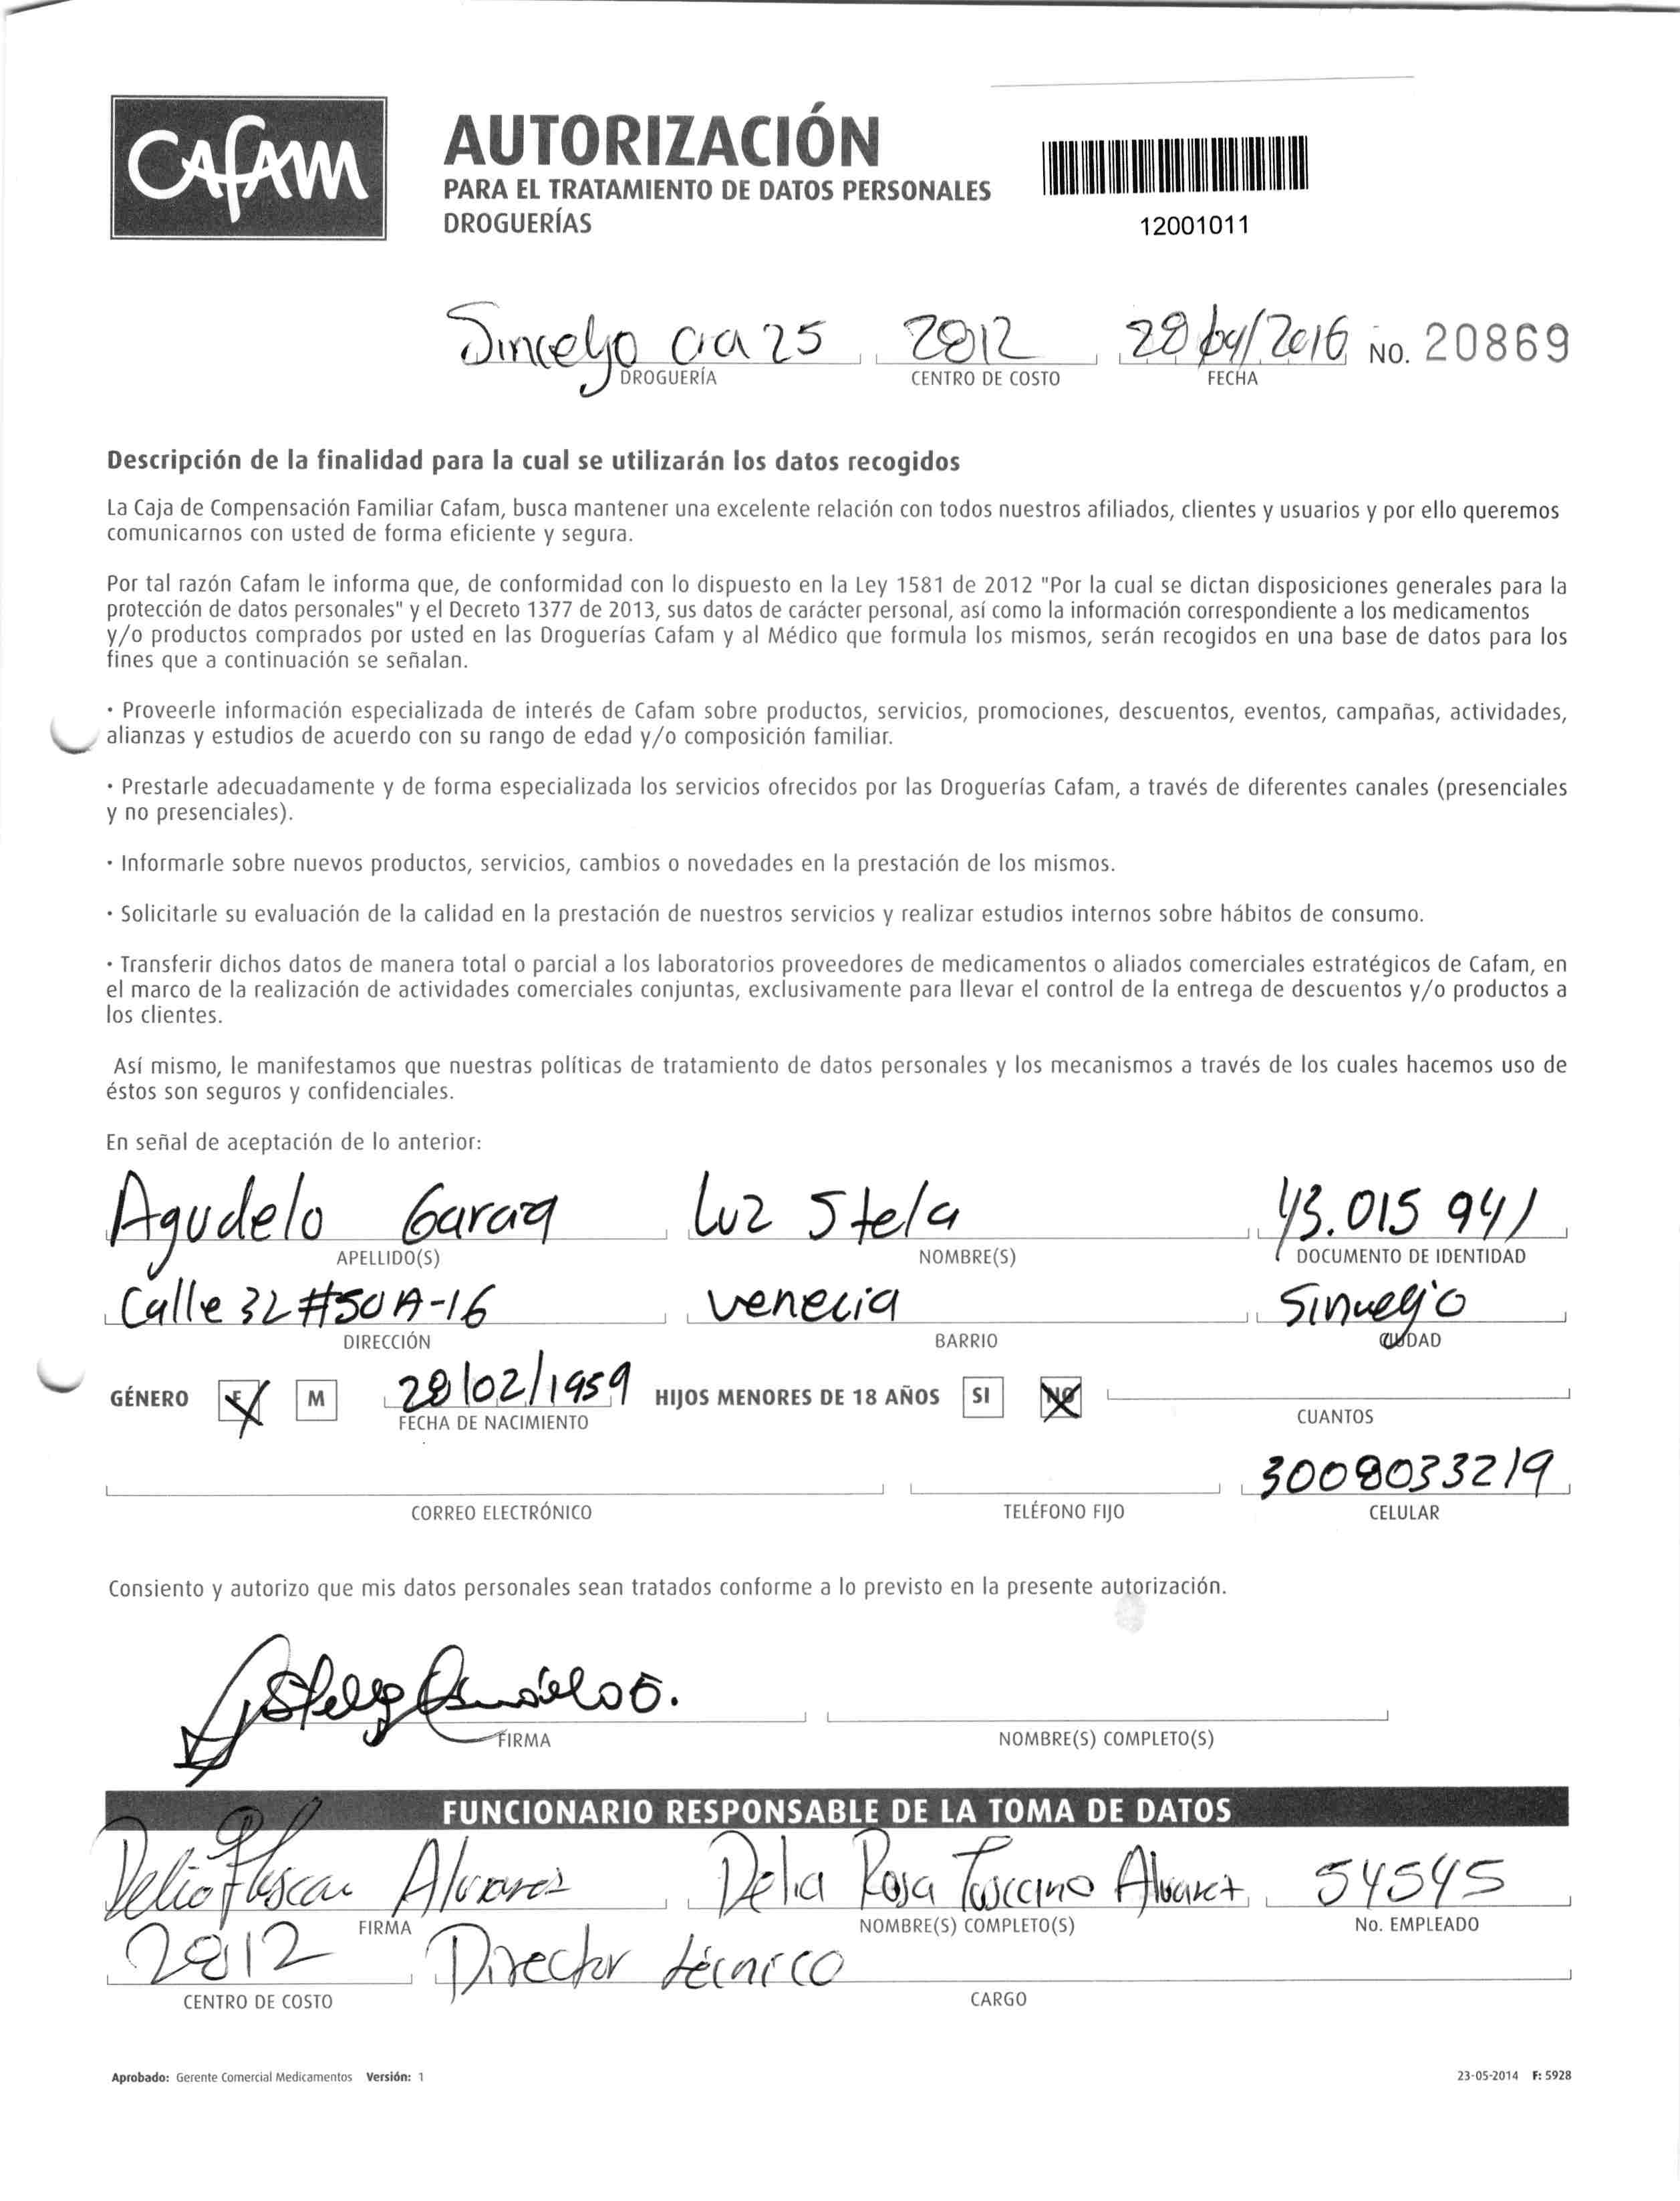 CAfAM
AUTORIZACIÓN
PARA EL TRATAMIENTO DE DATOS PERSONALES
DROGUERÍAS
12001011
Sincelejo 25 2812 28/04/2016 NO. 20869
DROGUERÍA CENTRO DE COSTO FECHA
Descripción de la finalidad para la cual se utilizarán los datos recogidos
La Caja de Compensación Familiar Cafam, busca mantener una excelente relación con todos nuestros afiliados, clientes y usuarios y por ello queremos
comunicarnos con usted de forma eficiente y segura.
Por tal razón Cafam le informa que, de conformidad con lo dispuesto en la Ley 1581 de 2012 "Por la cual se dictan disposiciones generales para la
protección de datos personales" y el Decreto 1377 de 2013, sus datos de carácter personal, así como la información correspondiente a los medicamentos
y/o productos comprados por usted en las Droguerías Cafam y al Médico que formula los mismos, serán recogidos en una base de datos para los
fines que a continuación se señalan.
· Proveerle información especializada de interés de Cafam sobre productos, servicios, promociones, descuentos, eventos, campañas, actividades,
alianzas y estudios de acuerdo con su rango de edad y/o composición familiar.
· Prestarle adecuadamente y de forma especializada los servicios ofrecidos por las Droguerías Cafam, a través de diferentes canales (presenciales
y no presenciales).
· Informarle sobre nuevos productos, servicios, cambios o novedades en la prestación de los mismos.
· Solicitarle su evaluación de la calidad en la prestación de nuestros servicios y realizar estudios internos sobre hábitos de consumo.
· Transferir dichos datos de manera total o parcial a los laboratorios proveedores de medicamentos o aliados comerciales estratégicos de Cafam, en
el marco de la realización de actividades comerciales conjuntas, exclusivamente para llevar el control de la entrega de descuentos y/o productos a
los clientes.
Así mismo, le manifestamos que nuestras políticas de tratamiento de datos personales y los mecanismos a través de los cuales hacemos uso de
éstos son seguros y confidenciales.
En señal de aceptación de lo anterior:
Agudelo Luz Stela 43.015 941
APELLIDO(S) NOMBRE(S) DOCUMENTO DE IDENTIDAD
Calle 32 #50A-16 venecia Sincelejo
DIRECCIÓN BARRIO CIUDAD
GÉNERO F M 28/02/1959 HIJOS MENORES DE 18 AÑOS SI NO
FECHA DE NACIMIENTO CUANTOS
3008033219
CORREO ELECTRÓNICO TELÉFONO FIJO CELULAR
Consiento y autorizo que mis datos personales sean tratados conforme a lo previsto en la presente autorización.
FIRMA NOMBRE(S) COMPLETO(S)
FUNCIONARIO RESPONSABLE DE LA TOMA DE DATOS
Alvarez Delia Rosa Alvarez 54545
FIRMA NOMBRE(S) COMPLETO(S) No. EMPLEADO
2812 Director técnico
CENTRO DE COSTO CARGO
Aprobado: Gerente Comercial Medicamentos Versión: 1 23-05-2014 F: 5928